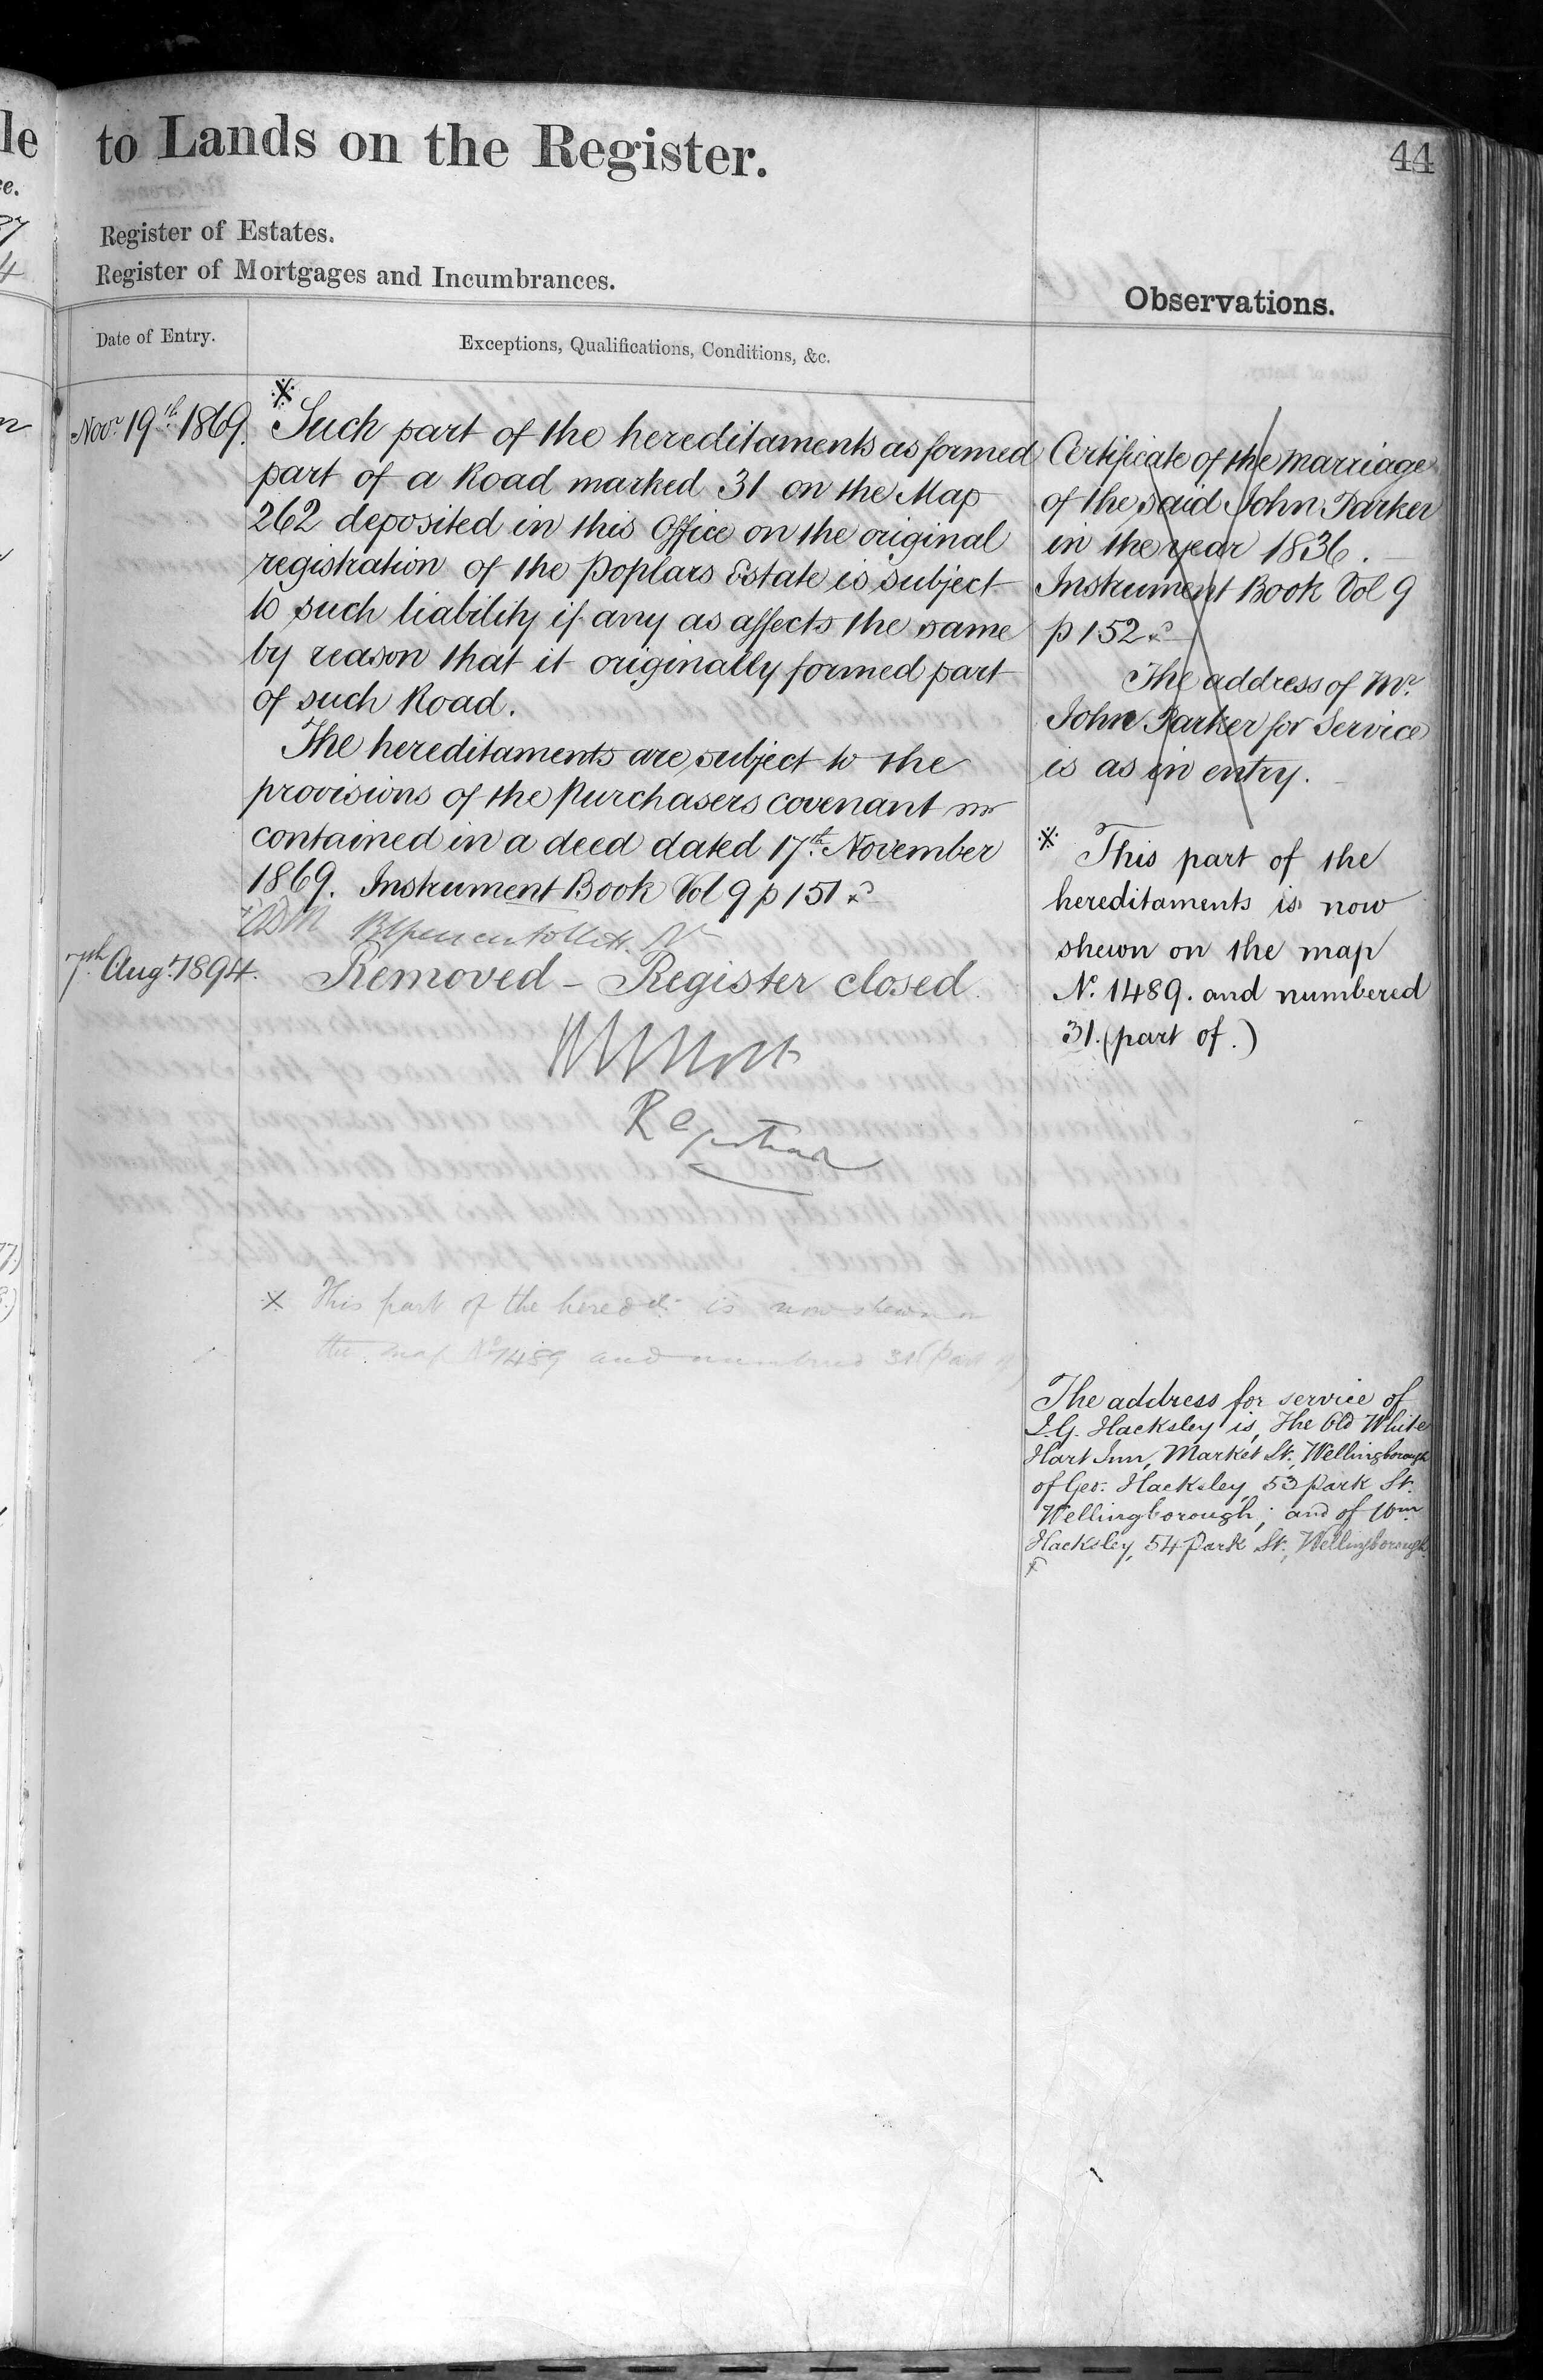 to Lands on the Register.
44
Register of Estates.
Register of Mortgages and Incumbrances.
Observations.
Date of Entry.
Exceptions, Qualifications, Conditions, &c.
Novr. 19th. 1869.
Such part of the hereditaments as formed
part of a Road marked 31 on the Map
262 deposited in this Office on the original
registration of the Poplars Estate is subject
to such liability if any as affects the same
by reason that it originally formed part
of such Road.
The hereditaments are subject to the
provisions of the Purchasers covenant
contained in a deed dated 17th. November
1869. Instrument Book Vol 9 p 151
7th. Augt. 1894.
Removed – Register closed
Registrar
x This part of the heredts. is now shewn on
the map No 1489 and numbered 31 (part of)
Certificate of the marriage
of the said John Parker
in the year 1836.
Instrument Book Vol 9
p 152
The address of Mr.
John Parker for Service
is as in entry.
※ This part of the
hereditaments is now
shewn on the map
No. 1489. and numbered
31. (part of.)
The address for service of
J.G. Hacksley is, The Old White
Hart Inn, Market St., Wellingborough
of Geo. Hacksley, 53 Park St.
Wellingborough; and of Wm.
Hacksley, 54 Park St., Wellingborough.